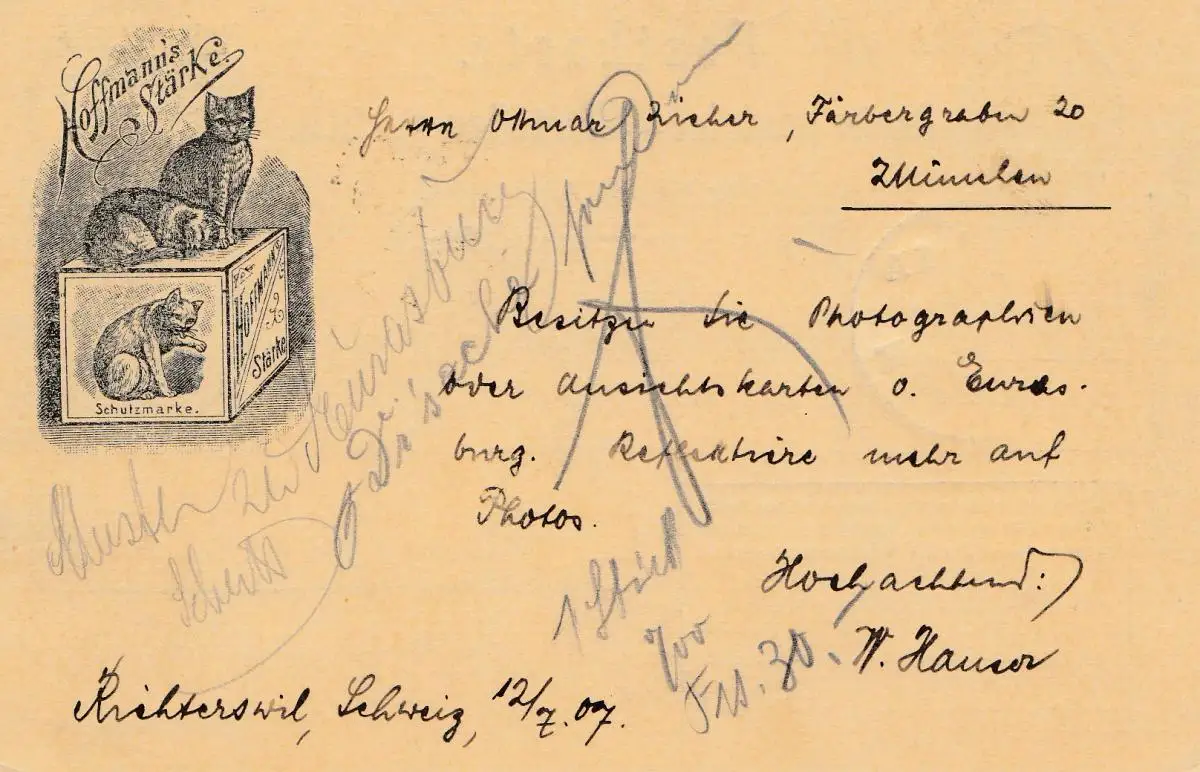 Hoffmann's
Stärke.
HOFFMANN's
Stärke
Schutzmarke.
Herrn Ottmar Zieher, Färbergraben 20
München
Besitzen Sie Photographien
oder Ansichtskarten v. Euras-
burg. Reflektiere mehr auf
Photos.
Hochachtend:
W. Hauser
Richterswil, Schweiz, 12/7.07.
Muster zu Eurasburg
1 Stück
700
Frs. 30.